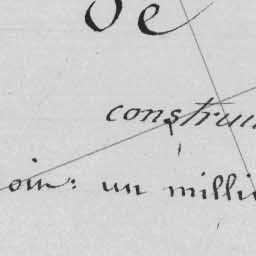 de
constru
oin: un milli